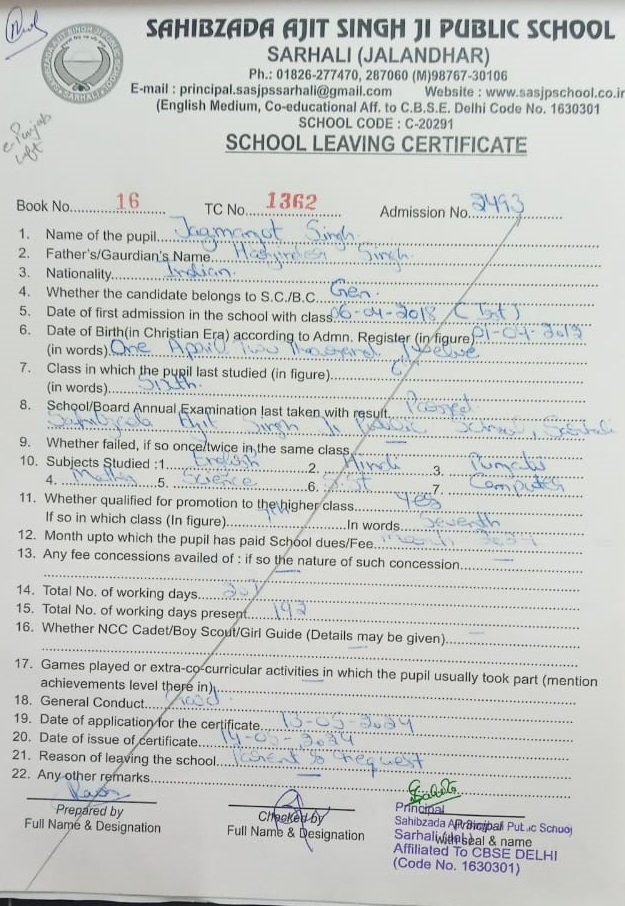 SAHIBZADA AJIT SINGH JI PUBLIC SCHOOL
SARHALI (JALANDHAR)
Ph.: 01826-277470, 287060 (M)98767-30106
E-mail : principal.sasjpssarhali@gmail.com Website : www.sasjpschool.co.in
(English Medium, Co-educational Aff. to C.B.S.E. Delhi Code No. 1630301
SCHOOL CODE : C-20291
e-Punjab
Left
SCHOOL LEAVING CERTIFICATE
Book No. 16 TC No. 1362 Admission No. 2493
1. Name of the pupil Singh
2. Father's/Gaurdian's Name Singh
3. Nationality Indian
4. Whether the candidate belongs to S.C./B.C. Gen.
5. Date of first admission in the school with class 06-04-2018 (Ist)
6. Date of Birth(in Christian Era) according to Admn. Register (in figure) 01-04-2012
(in words) One April Two Thousand Twelve
7. Class in which the pupil last studied (in figure)
(in words) Sixth
8. School/Board Annual Examination last taken with result Passed
Sahibzada Ajit Singh Ji Public School, Sarhali
9. Whether failed, if so once/twice in the same class —
10. Subjects Studied :1. English 2. Hindi 3. Punjabi
4. Maths 5. Science 6. S.St 7. Computer
11. Whether qualified for promotion to the higher class yes
If so in which class (In figure) In words Seventh
12. Month upto which the pupil has paid School dues/Fee March 2024
13. Any fee concessions availed of : if so the nature of such concession —
14. Total No. of working days
15. Total No. of working days present 192
16. Whether NCC Cadet/Boy Scout/Girl Guide (Details may be given) —
17. Games played or extra-co-curricular activities in which the pupil usually took part (mention
achievements level there in) —
18. General Conduct Good
19. Date of application for the certificate 13-05-2024
20. Date of issue of certificate 14-05-2024
21. Reason of leaving the school Parent's request
22. Any other remarks —
Prepared by
Full Name & Designation
Checked by
Full Name & Designation
Principal
Sahibzada Ajit Singh Ji Public School
Principal
Sarhali (Jal.)
with seal & name
Affiliated To CBSE DELHI
(Code No. 1630301)